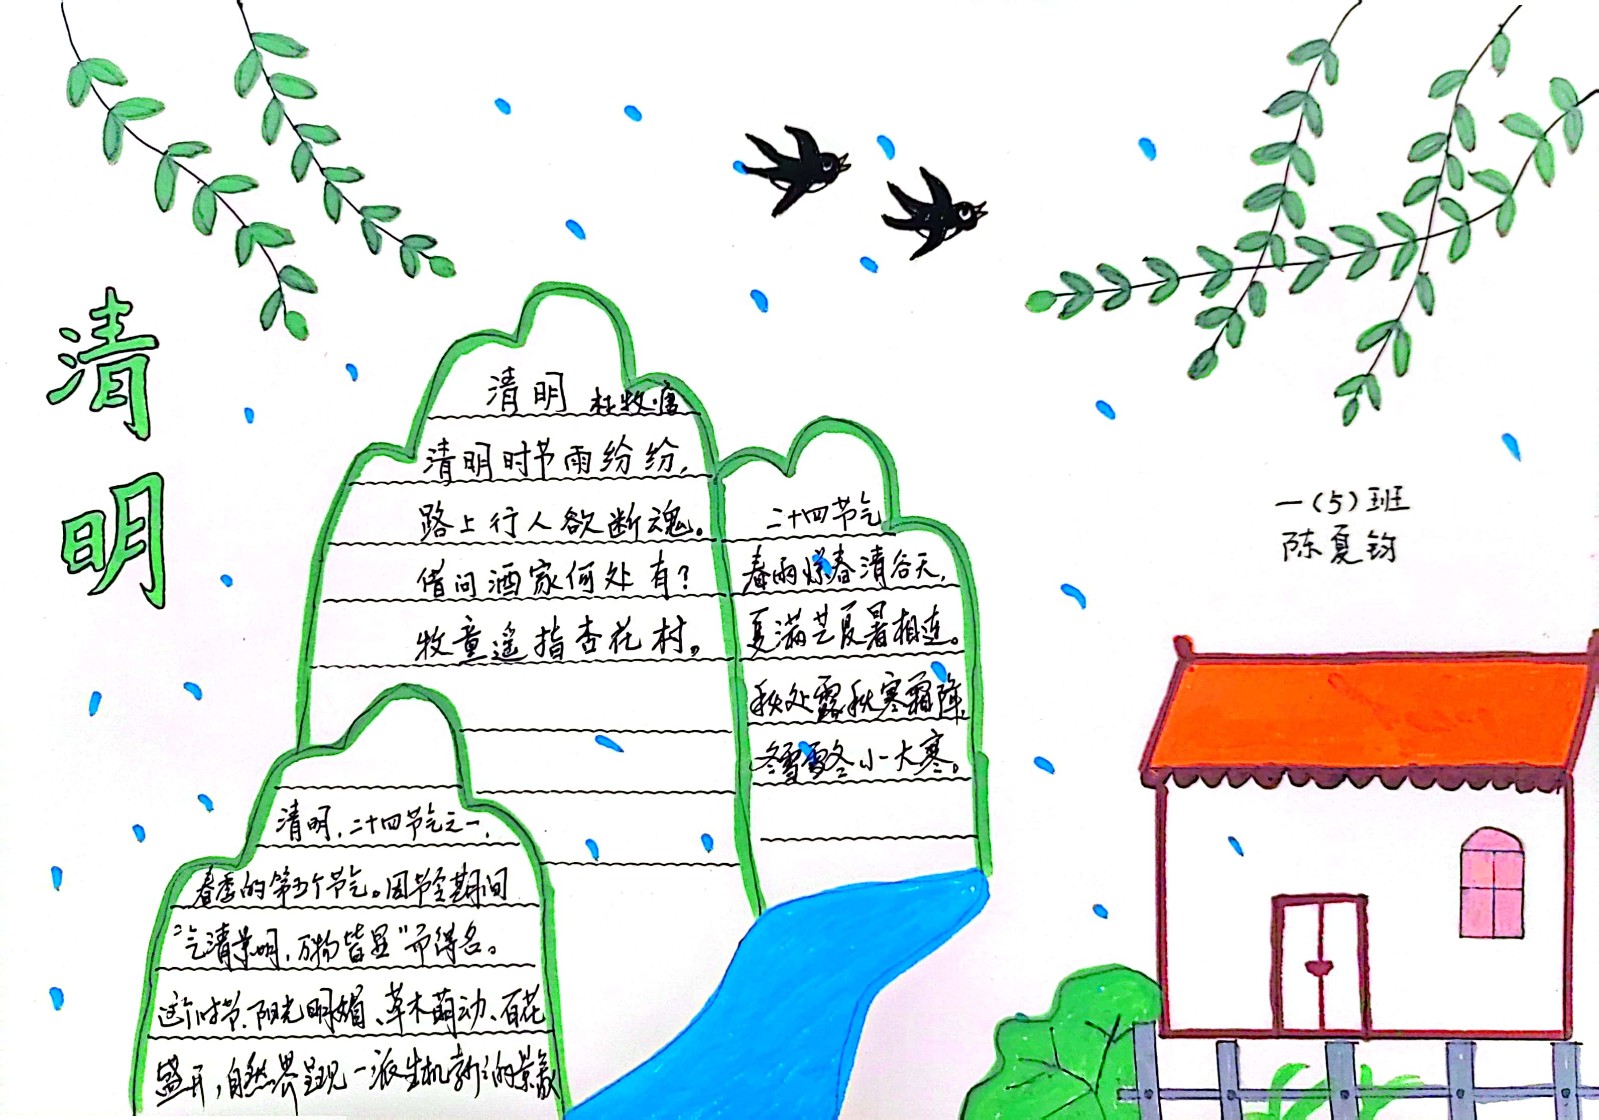 清明
清明 杜牧·唐
清明时节雨纷纷,
路上行人欲断魂。
借问酒家何处有?
牧童遥指杏花村。
二十四节气
春雨惊春清谷天,
夏满芒夏暑相连。
秋处露秋寒霜降,
冬雪雪冬小大寒。
清明,二十四节气之一,
春季的第五个节气。因节令期间
“气清景明,万物皆显”而得名。
这个时节,阳光明媚、草木萌动、百花
盛开,自然界呈现一派生机勃勃的景象
一(5)班
陈夏钧